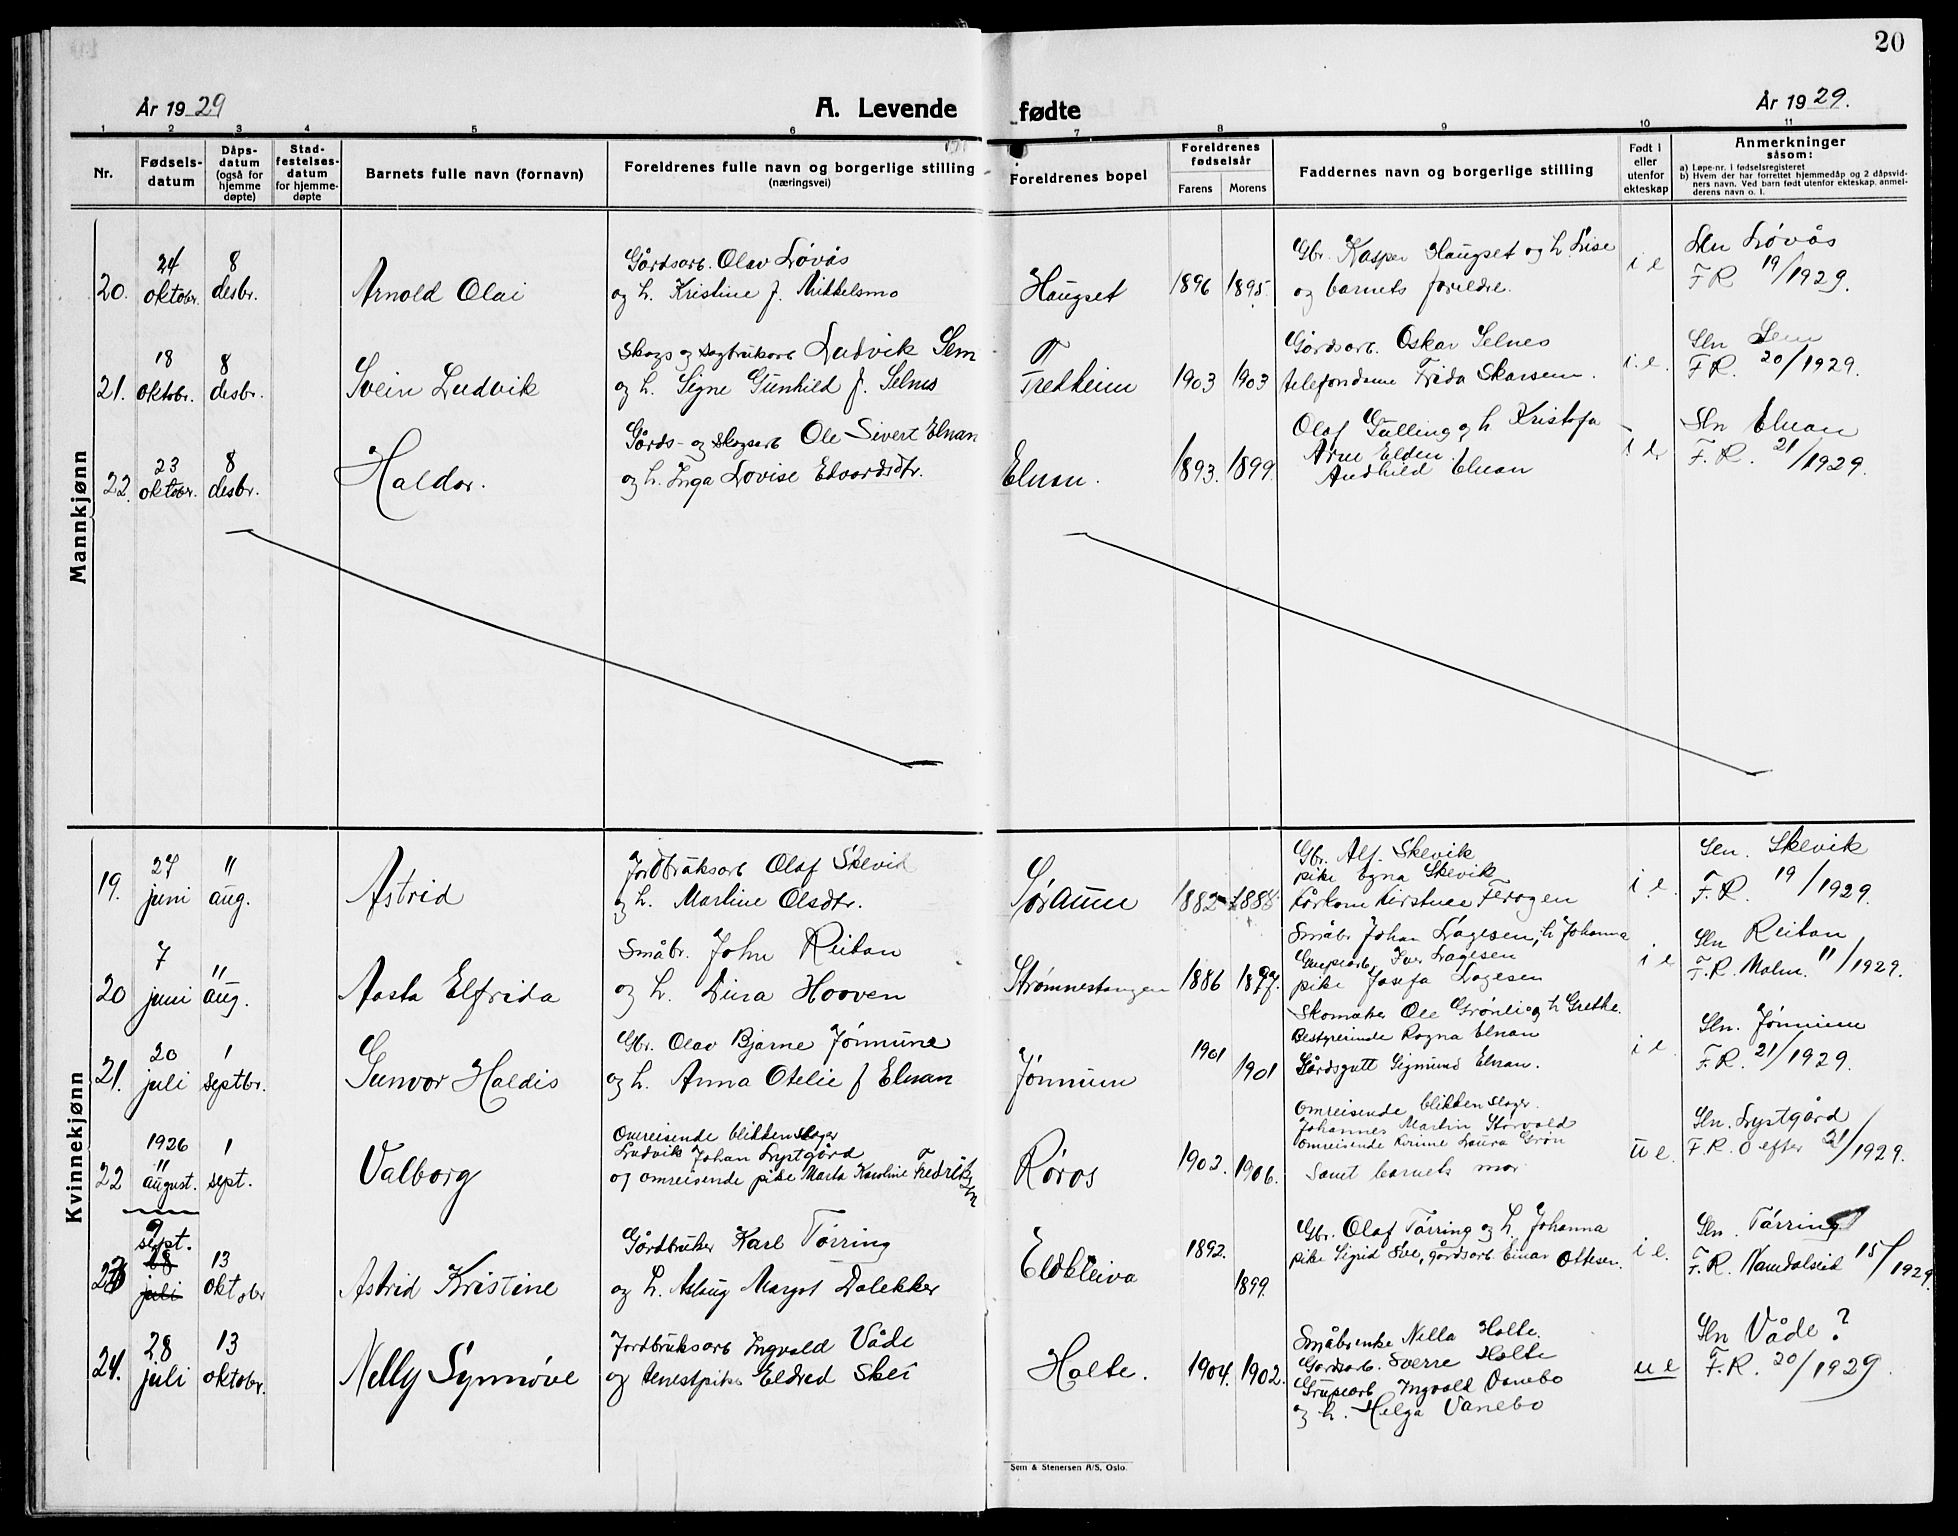 20
År 1929
A. Levende fødte
År 1929.
1 2 3 4 5 6 7 8 9 10 11
Nr.
Fødsels-
datum
Dåps-
datum
(også for
hjemme
døpte)
Stad-
festelses-
datum
for hjemme-
døpte
Barnets fulle navn (fornavn)
Foreldrenes fulle navn og borgerlige stilling
(næringsvei)
Foreldrenes bopel
Foreldrenes
fødselsår
Farens Morens
Faddernes navn og borgerlige stilling
Født i
eller
utenfor
ekteskap
Anmerkninger
såsom:
a) Løpe-nr. i fødselsregisteret
b) Hvem der har forrettet hjemmedåp og 2 dåpsvid-
ners navn. Ved barn født utenfor ekteskap, anmel-
derens navn o. l.
Mannkjønn
20.
24
oktobr.
8
desbr.
Arnold Olai
Gårdsarb. Olav Løvås
og h. Kristine f. Mikkelsmo
Haugset
1896 1895.
Gbr. Kasper Haugset og h. Lise
og barnets foreldre.
i e
Sln Løvås
F R 19/1929.
21.
18
oktobr.
8
desbr.
Svein Ludvik
Skogs og Sagbruksarb Ludvik Sem
og h. Signe Gunhild f. Selnes
Tredheim
1903 1903
Gårdsarb. Oskar Selnes
telefondame Frida Skarsem.
i. e.
Sln Sem
F R. 20/1929.
22.
23
oktobr.
8
desbr.
Haldor.
Gårds- og Skogsarb Ole Sivert Elnan
og h. Inga Lovise Edvardsdtr.
Elnan.
1893. 1899.
Olaf Gulling og h Kristofa
Arne Elden.
Audhild Elnan
i e
Sln Elnan
F. R. 21/1929.
Kvinnekjønn
19.
27
juni
11
aug.
Astrid
Jordbruksarb Olaf Skevik
og h. Martine Olsdtr.
Søraune
1882 1888
Gbr. Alf. Skevik
pike Egna Skevik
i e.
Sln. Skevik
F. R. 19/1929.
20
7
juni
11
aug.
Aasta Elfrida
Småbr. John Reitan
og h. Dina Hooven
Strømnestangen
1886
Småbr Johan Lagesen, h Johanna
Grupearb, Iver Lagesen
pike Josefa Lagesen
i e
Sln Reitan
F. R. Malm. 11/1929.
21.
20
juli
1
septbr.
Gunvor Haldis
Gbr. Olav Bjarne Jønnum
og h. Anna Otelie f Elnan
Jønnum
1901
1901
Skomaker Ole Grønli og h Grethe.
Bestyrerinde Ragna Elnan
Gårdsgutt Sigmund Elnan.
i e.
Sln. Jønnum
F. R. 21/1929.
22
1926
11
august.
1
sept.
Valborg
Omreisende blikkenslager
Ludvik Johan Lystgård
og omreisende pike Marta Karoline Fredriksen
Røros
1902. 1906.
Omreisende blikkenslager.
Johannes Martin Storvold
Omreisende kvinne Laura Grøn
Samt barnets mor
u e.
Sln. Lystgård
F. R. 0 efter 21/1929.
23
9
sept.
28
juli
13
oktobr
Astrid Kristine
Gårdbruker Karl Tørring
og h. Aslaug Margot Dalekker
Eldkleiva
1892.
1899.
Gbr. Olaf Tørring og h. Johanna
pike Sigrid Sve, gårdsarb Einar Ottesen.
i e.
Sln. Tørring
F. R. Namdalseid 15/1929.
24.
28
juli
13
oktobr.
Nelly Synnøve
Jordbruksarb Ingvald Våde
og tenestpike Eldred Skei
Holte.
1904. 1902.
Småbrenke Nella Holte.
Gårdsarb. Sverre Holte
Grupearb Ingvald Vanebo
og h. Helga Vanebo
u e
Sln Våde?
F. R. 20/1929
Sem & Stenersen A/S, Oslo.